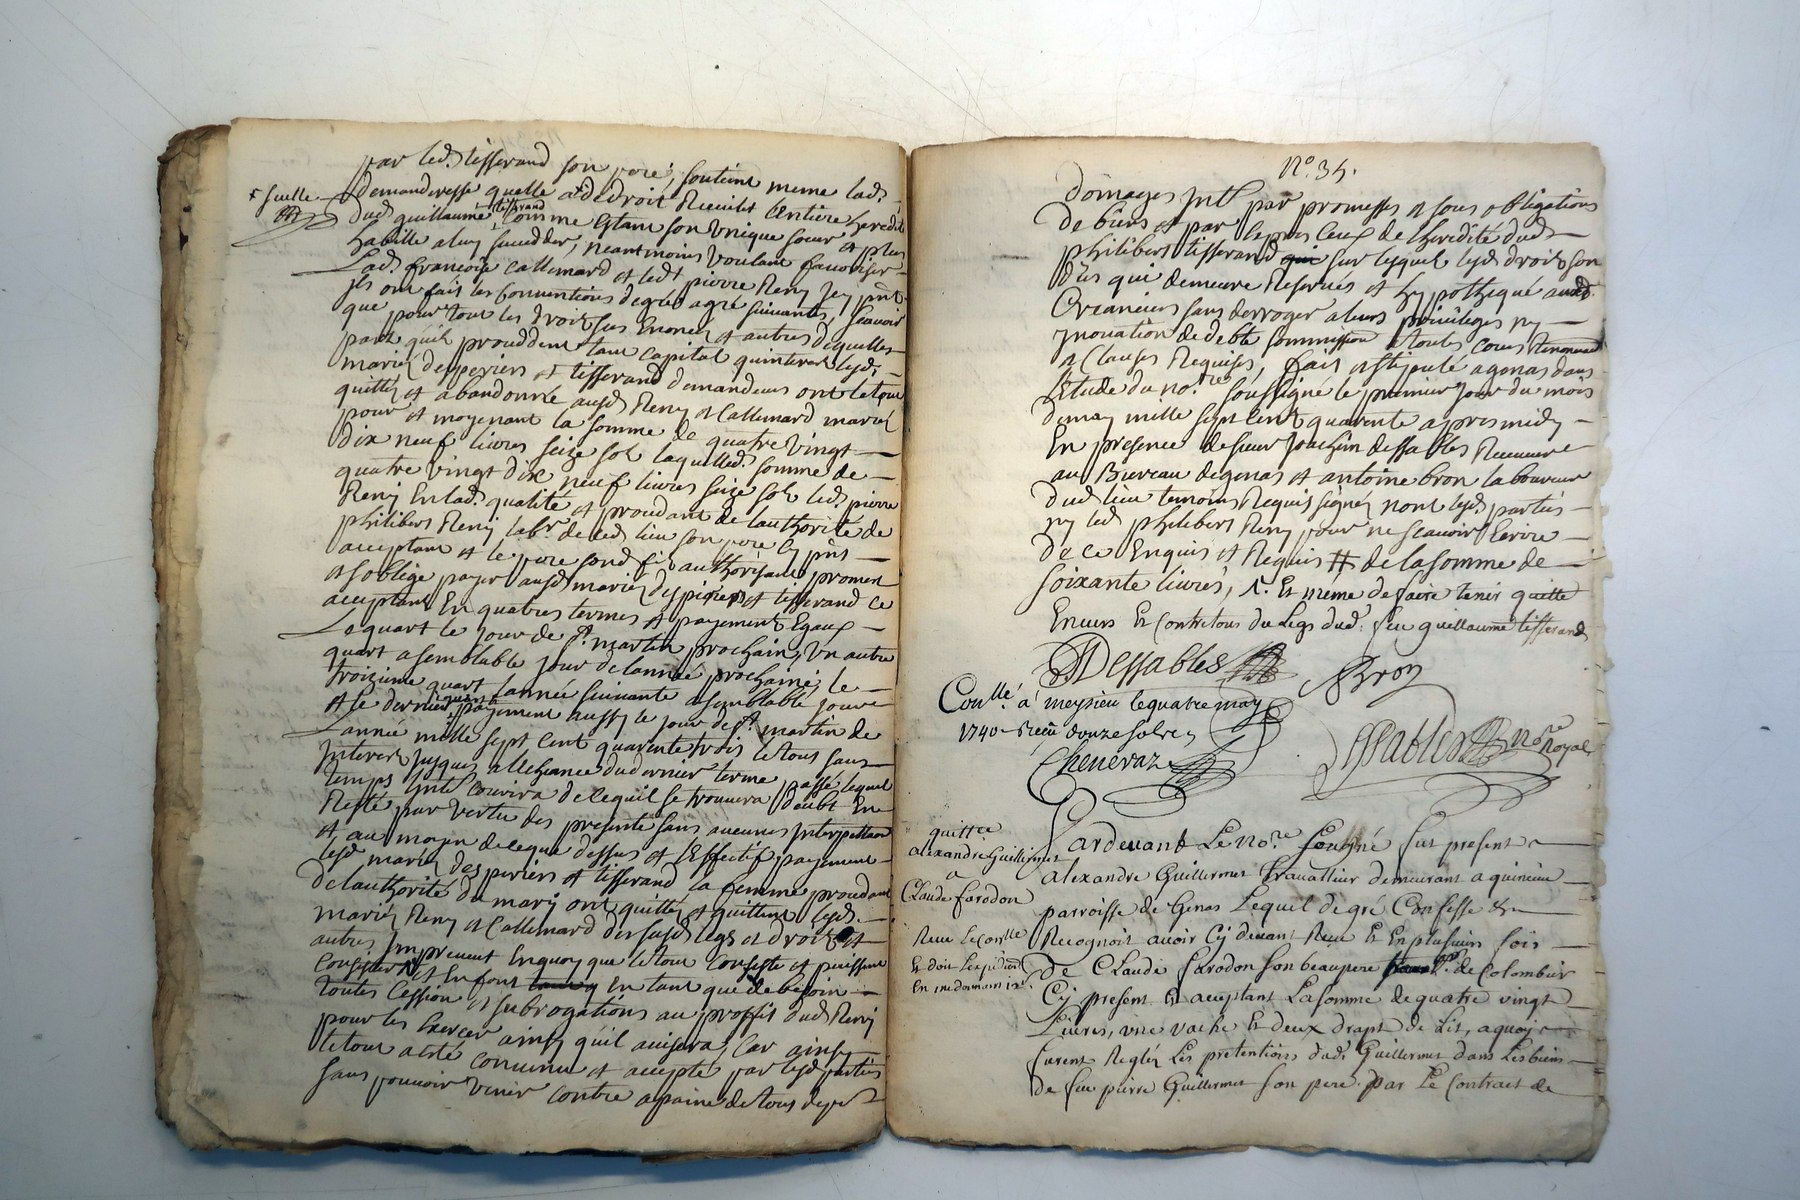 par led. tisserand son pere, soutient meme lad.
+ feuë
demanderesse quelle a de droit Recueilit lentiere heredité
dud guillaume tisserand comme Estant son Unique soeur et plus
habille a luy succedder, neantmoins voulant favoriser
Lad. françoise callemard et led. pierre Remy
ils ont fait les Conventions degré a gré suivantes, scavoir
que pour tout les droits sus Enoncés et autres desquelles
part quil proceddent tant capital quinterest lesd.
mariéz desperiers et tisserand demandeurs ont le tout
quitté et abandonné ausd. Remy et Callemard mariéz
pour et moyenant la somme de quatre vingt
dix neuf livres seize sol laquelled. somme de
quatre vingt dix neuf livres seize sols led. pierre
Remy En lad. qualité et procedant de lauthorité de
philibert Remy labr. de ced. lieu son pere Cy pnt
acceptant et le pere sond. fils authorisant promet
et soblige payer ausd. mariéz desperiers et tisserand Ce
acceptant En quatres termes et payement Egaux
Le quart le jour de st. martin prochain, Un autre
quart a semblable jour de lannée prochaine, le
troizieme quart lannée suivante a semblable jour
et le dernier payement aussy le jour de st. martin de
Lannée mille sept cent quarente trois le tous sans
Interest jusques a lecheance du dernier terme passé lequel
temps Intt. courira de ce quil se trouvera deubt En
Reste par vertu des presente sans aucunes Interpellaon
et au moyen de ce que dessus et leffectif payement
lesd. mariéz desperiers et tisserand la femme procedant
de lauthorité du mary ont quittéz et quittent lesd.
mariéz Remy et Callemard des susd. legs et droits et
autres Imprevent En quoy que le tout Consiste et puissent
Consister et En font En tant que de besoin
toutes Cession et subrogations au proffit dud. Remy
pour les Exercer ainsy quil avisera, Car ainsy
le tout a esté convenu et accepté par lesd. parties
sans pouvoir venir contre a paine de tous depens
No. 34.
Domages Intt. par promesses et sous obligations
de biens et par Expres Ceux de lheredité dud.
philibert tisserand sur lesquel lesd. droits son
dûs qui demeure Reservés et hypothequé ausd.
Creanciers sans derroger a leurs privileges ny
Inovation de debte soumission a toutes cours Renoncia
et Clauses Requises, fait et stipulé a genas dans
létude du nore. soussigné le premier jour du mois
de may mille sept cent quarente apres midy
En presence de sieur joachin dessables Receveur
au Bureau de genas et antoine bron laboureur
dud. lieu temoins Requis signéz non lesd. parties
ny led. philibert Remy pour ne scavoir Ecrire
de ce Enquis et Requis # de la somme de
soixante livres, +. Et même de faire tenir quitte
Envers Et Contre tous du Legs dud. feu guillaume tisserand
JDessables
ABron
Conllé. a meysieu le quatre may
1740 Reçu douze sols
Cheneraz
Dessables nore. Royal
quittce
alexandre Guillermet
a
Claude farodon
Pardevant Le nore. soussigné fut present
alexandre Guillermet travallieur demeurant a quincieu
parroisse de Genas Lequel de gré Confesse et
Recognoit avoir Cy devant Reçu Et En plusieurs fois
de Claude farodon son beaupere de Colombier
Cy present Et acceptant La somme de quatre vingt
Livres, une vache Et deux draps de Lit, a quoy
furent Regléz Les pretentions dud. Guillermet dans Les biens
de feu pierre Guillermet son pere par Le Contract de